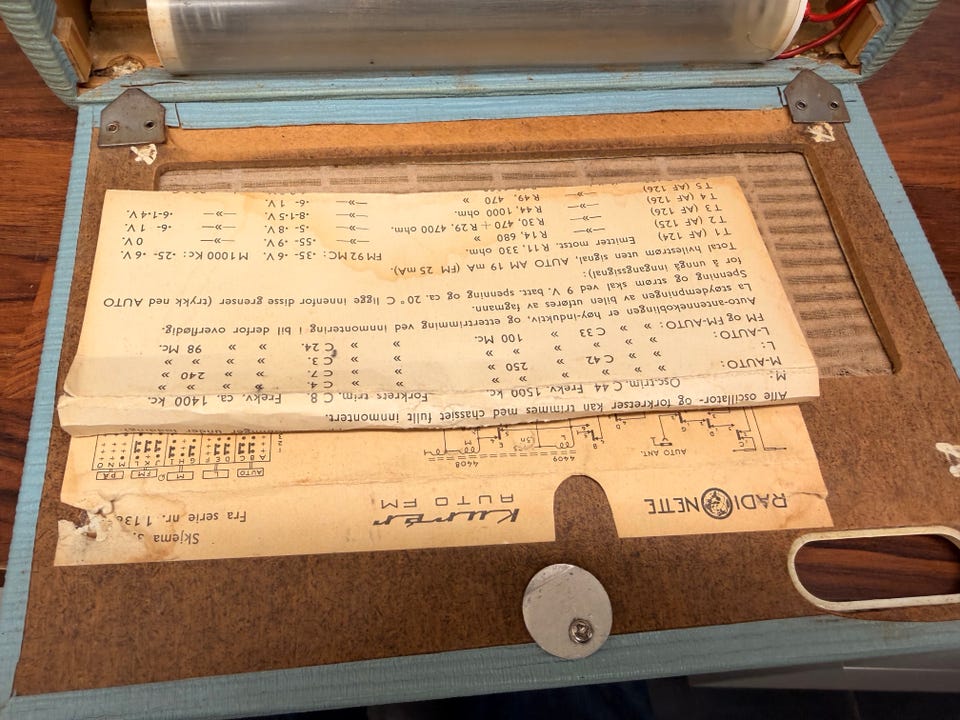 RADIONETTE Kurér Skjema 3.
AUTO FM Fra serie nr. 1.136
AUTO ANT. 4409 4408 AUTO L M FM BA
A B C D E F G H I J K L M N O
Alle oscillator- og forkretser kan trimmes med chassiet fullt innmontert.
M: Osc.trim. C 44 Frekv. 1500 kc. Forkrets trim. C 8. Frekv. ca. 1400 kc.
M-AUTO: » » » » » C 4. » » »
L: » » C 42 » 250 » » » C 7. » » 240 »
L-AUTO: » » » » » C 3. » » »
FM og FM-AUTO: » » C 33 » 100 Mc. » » C 24. » » 98 Mc.
Auto-antennekoblingen er høy-induktiv, og ettertrimming ved innmontering i bil derfor overflødig.
La støydempingen av bilen utføres av fagmann.
Spenning og strøm skal ved 9 V. batt. spenning og ca. 20° C ligge innenfor disse grenser (trykk ned AUTO
for å unngå inngangsignal):
Total hvilestrøm uten signal, AUTO AM 19 mA (FM 25 mA).
T 1 (AF 124) Emitter motst. R11, 330 ohm. FM 92 MC: ·35- ·6 V. M 1000 Kc: ·25- ·6 V.
T 2 (AF 125) —»— R14, 680 » —»— ·55- ·9 V. —»— 0 V.
T 3 (AF 126) —»— R30, 470 + R29, 4700 ohm. —»— ·5- ·8 V. —»— ·6- 1 V.
T 4 (AF 126) —»— R44, 1000 ohm. —»— ·8-1·5 V. —»— ·6-1·4 V.
T 5 (AF 126) —»— R49, 470 » —»— ·6- 1 V.